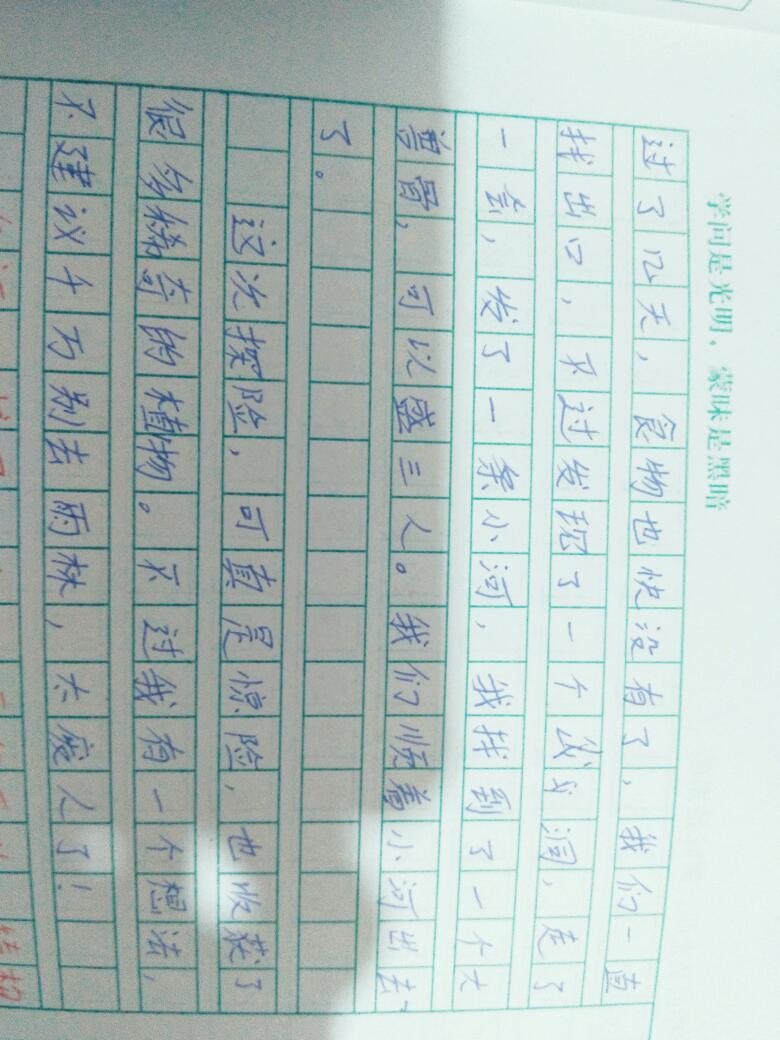 学问是光明，蒙昧是黑暗
过了几天，食物也快没有了，我们一直
找出口，不过发现了一个山洞，走了
一会，发了一条小河，我找到了一个大
可以盛三人。我们顺着小河出去
了。
这次探险，可真是惊险，也收获了
很多稀奇的植物。不过我有一个想法，
不建议千万别去雨林，太废人了！
结构